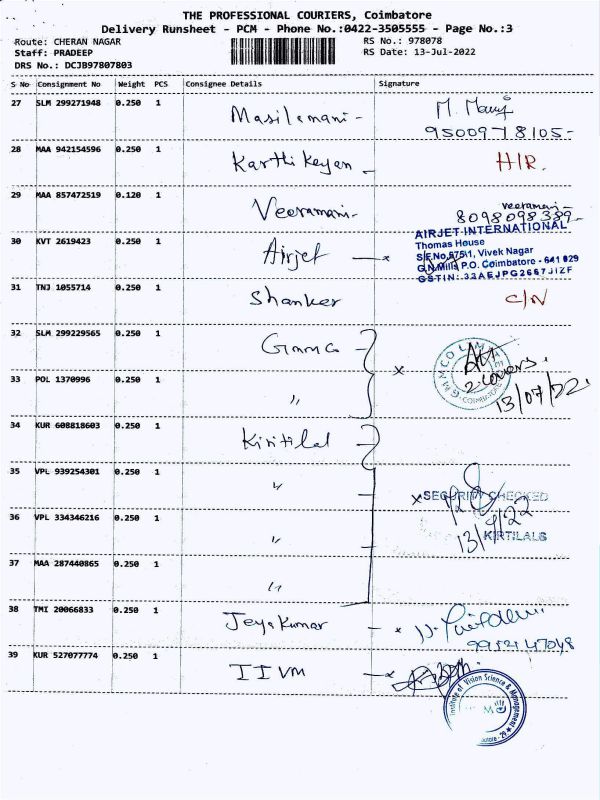 THE PROFESSIONAL COURIERS, Coimbatore
Delivery Runsheet - PCM - Phone No.:0422-3505555 - Page No.:3
Route: CHERAN NAGAR
Staff: PRADEEP
DRS No.: DCJB97807803
RS No.: 978078
RS Date: 13-Jul-2022
S No Consignment No Weight PCS Consignee Details Signature
27 SLM 299271948 0.250 1 Masilamani - M. Mani
9500978105-
28 MAA 942154596 0.250 1 Karthikeyan - H/R.
29 MAA 857472519 0.120 1 Veeramani- Veeramani-
8098098389-
30 KVT 2619423 0.250 1 Airjet x
AIRJET INTERNATIONAL
Thomas House
S.F.No.575/1, Vivek Nagar
G.N.Mills P.O. Coimbatore - 641 029
GSTIN:33AEJPG2667J1ZF
31 TNJ 1055714 0.250 1 Shanker C/N
32 SLM 299229565 0.250 1 Gmmco x
GMMCO LIMITED
COIMBATORE
2 covers.
13/07/22.
33 POL 1370996 0.250 1 "
34 KUR 608818603 0.250 1 Kiritilal
35 VPL 939254301 0.250 1 " x
SECURITY CHECKED
13/7/22
KIRTILALS
36 VPL 334346216 0.250 1 "
37 MAA 287440865 0.250 1 "
38 TMI 20066833 0.250 1 Jeyakumar - x
9952147048
39 KUR 527077774 0.250 1 IIVM x
Institute of Vision Science & Management